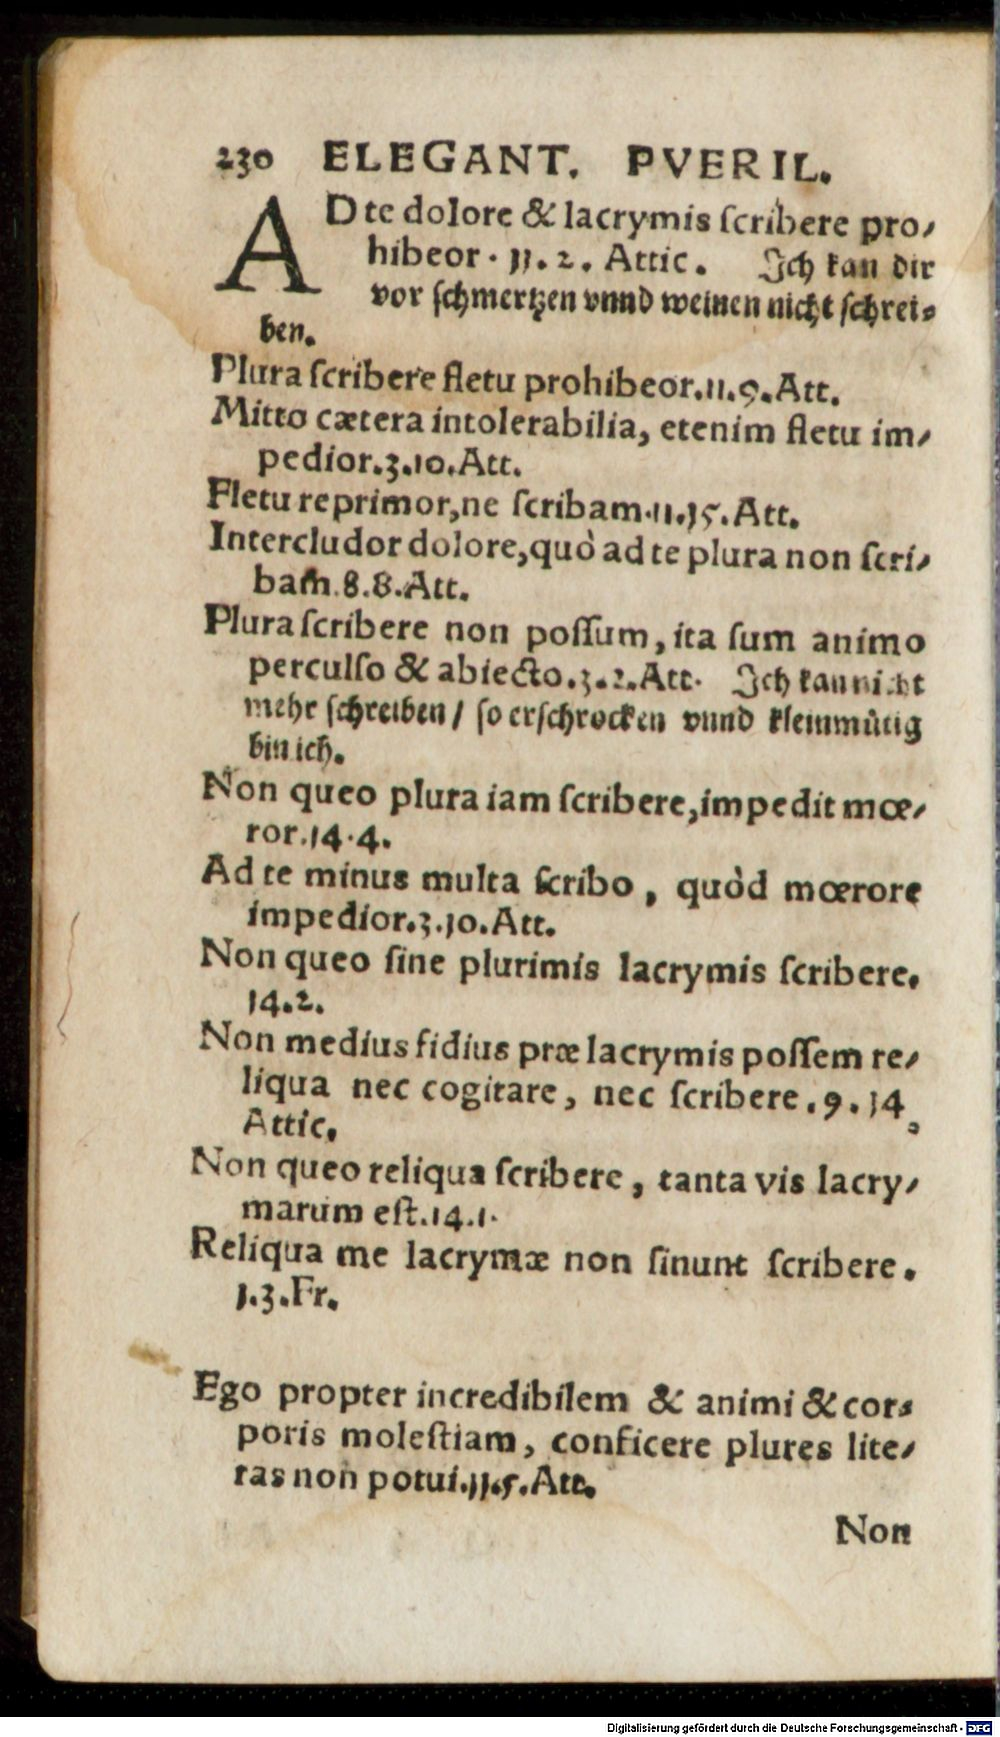 230 ELEGANT. PVERIL.
AD te dolore & lacrymis ſcribere pro-
hibeor. 11. 2. Attic. Ich kan dir
vor ſchmertzen vnnd weinen nicht ſchrei-
ben.
Plura ſcribere fletu prohibeor. 11. 9. Att.
Mitto cætera intolerabilia, etenim fletu im-
pedior. 3. 10. Att.
Fletu reprimor, ne ſcribam. 11. 15. Att.
Intercludor dolore, quò ad te plura non ſcri-
bam. 8. 8. Att.
Plura ſcribere non poſſum, ita ſum animo
perculſo & abiecto. 3. 2. Att. Ich kan nicht
mehr ſchreiben / ſo erſchrocken vnnd kleinmütig
bin ich.
Non queo plura iam ſcribere, impedit mœ-
ror. 14. 4.
Ad te minus multa ſcribo, quòd mœrore
impedior. 3. 10. Att.
Non queo ſine plurimis lacrymis ſcribere.
14. 2.
Non medius fidius præ lacrymis poſſem re-
liqua nec cogitare, nec ſcribere. 9. 14.
Attic.
Non queo reliqua ſcribere, tanta vis lacry-
marum eſt. 14. 1.
Reliqua me lacrymæ non ſinunt ſcribere.
1. 3. Fr.
Ego propter incredibilem & animi & cor-
poris moleſtiam, conficere plures lite-
ras non potui. 11. 5. Att.
Non
Digitalisierung gefördert durch die Deutsche Forschungsgemeinschaft - DFG